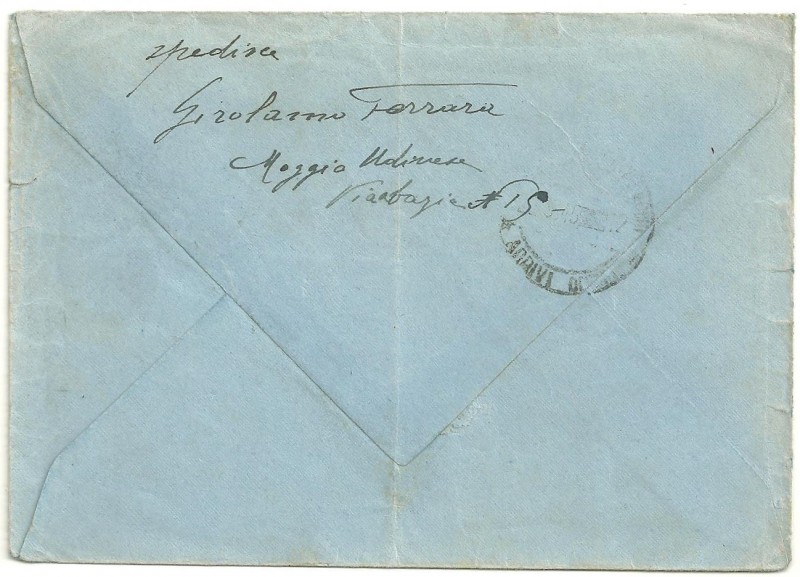 spedisce
Girolamo Ferrara
Moggio Udinese
Via Abazia N 15
ARRIVI